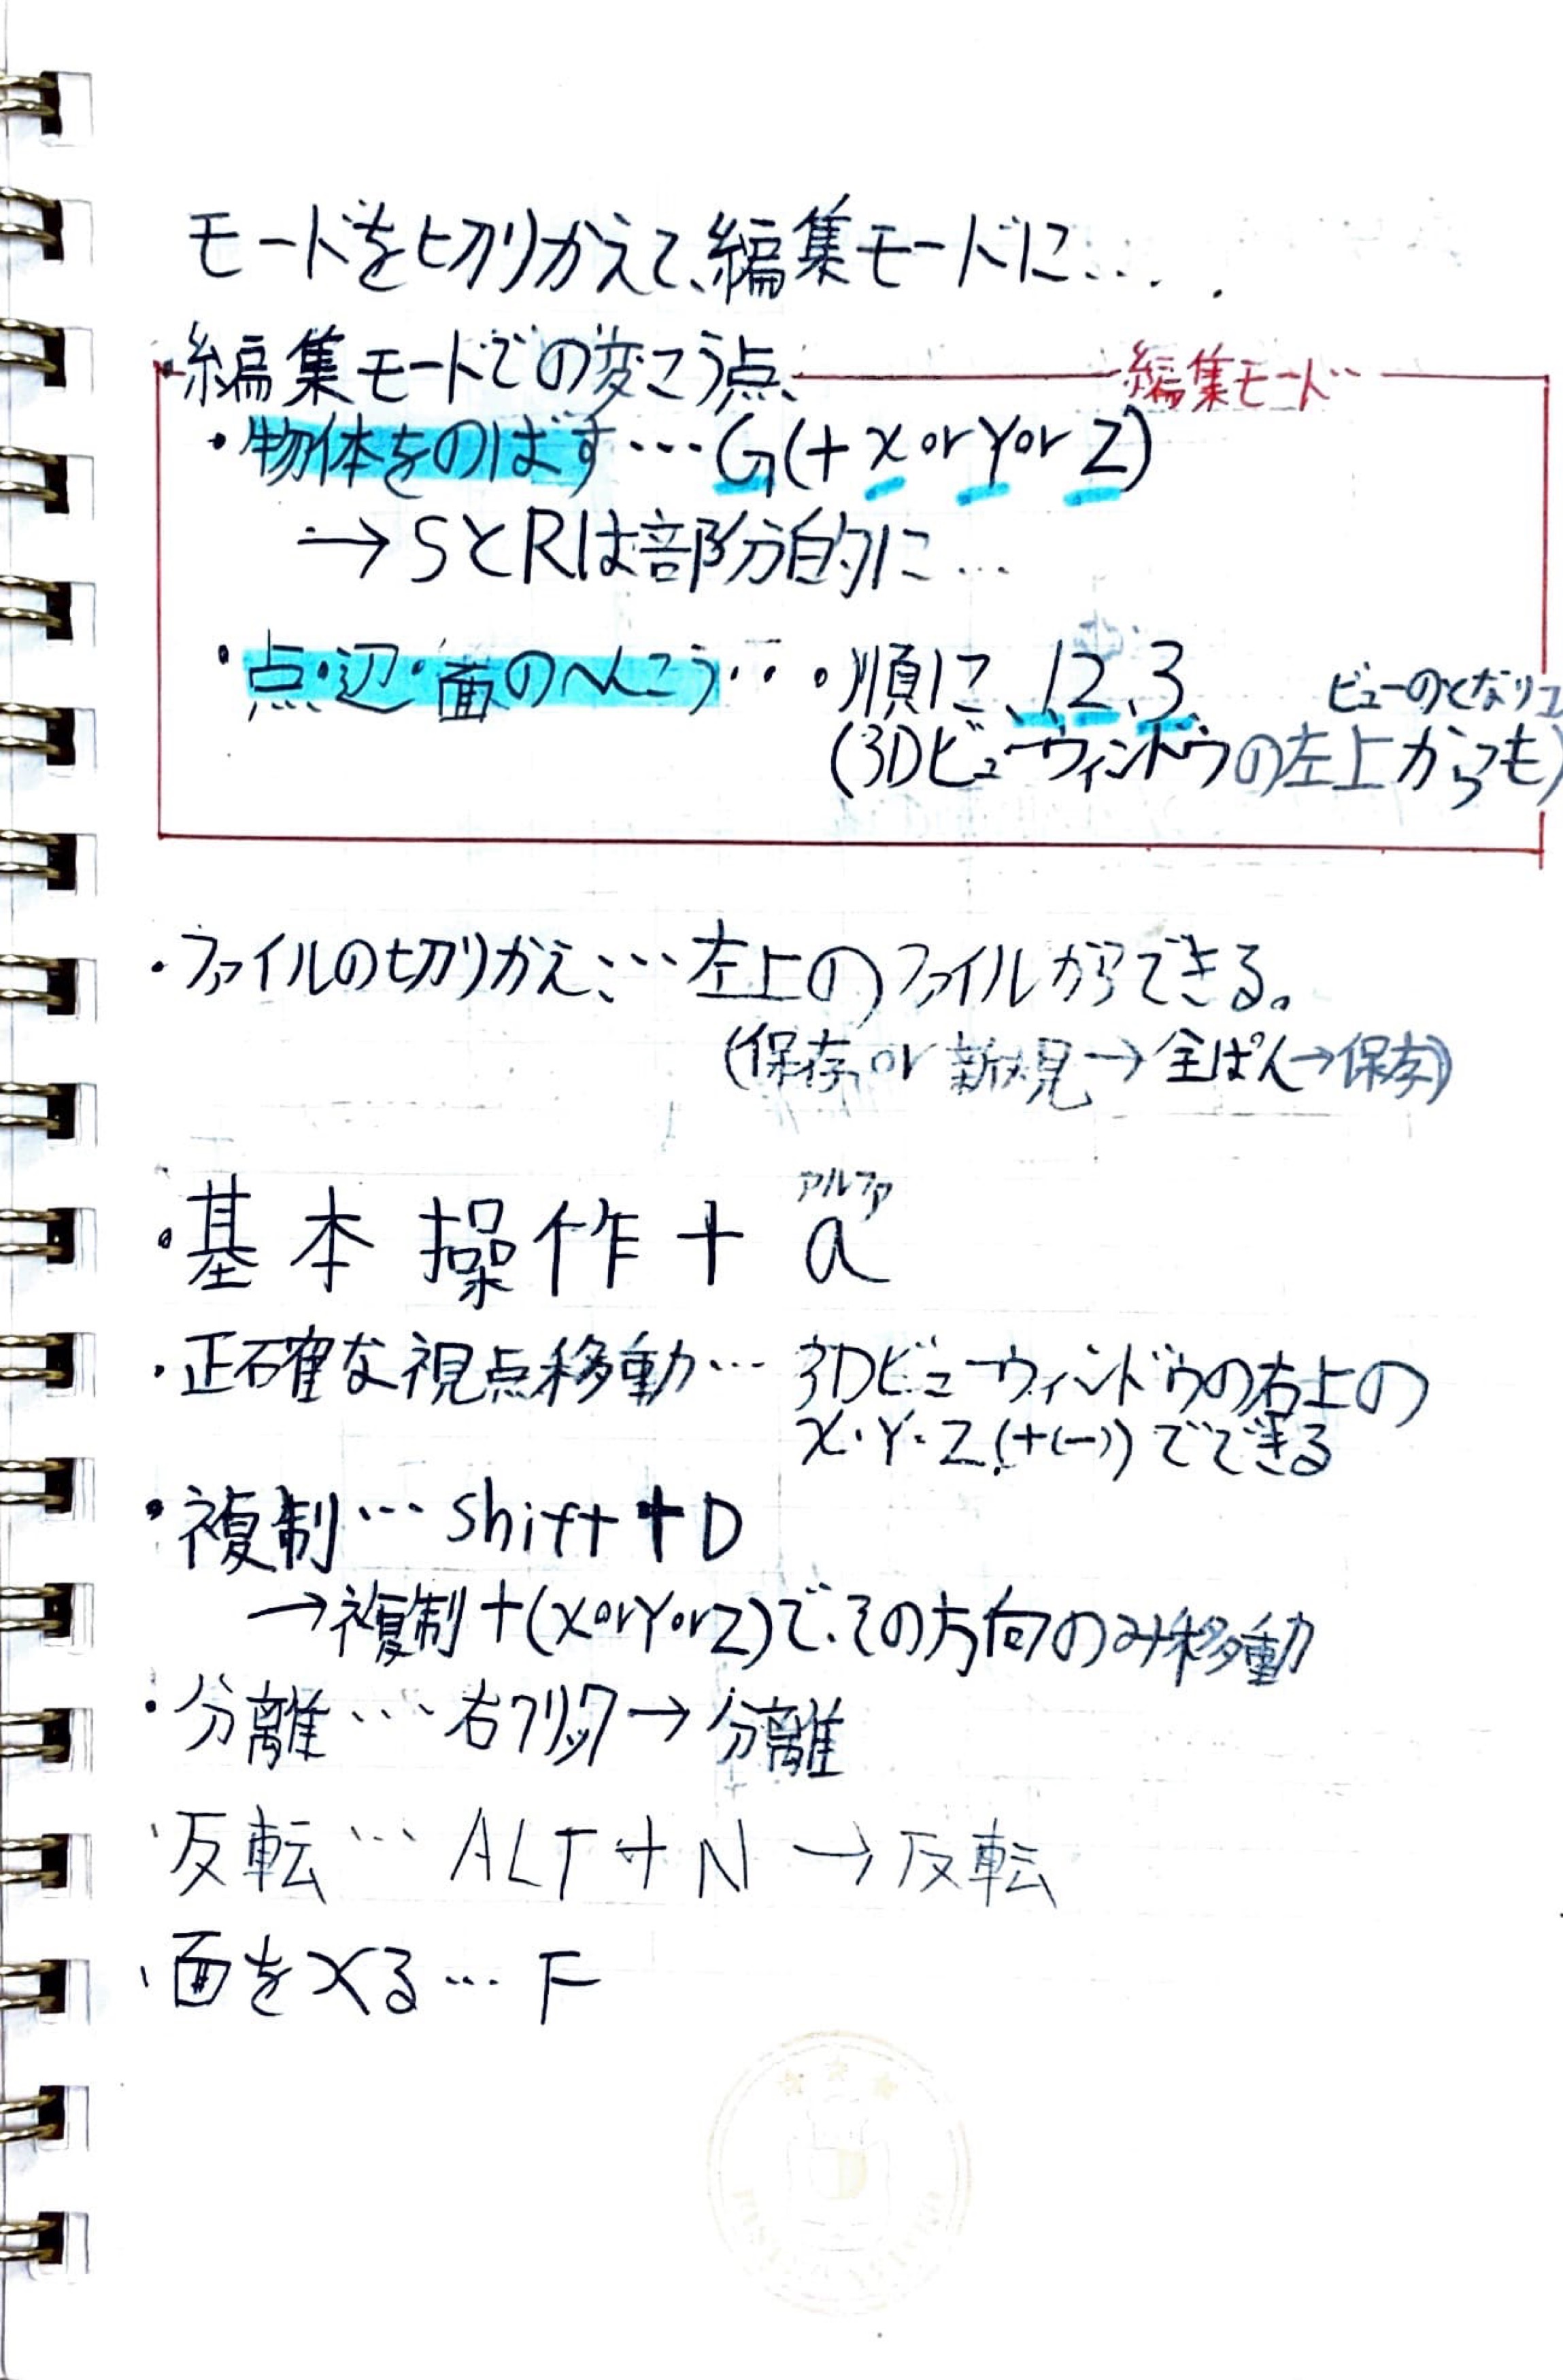 モードを切りかえて、編集モードに....
・編集モードでの変こう点、
編集モード
・物体をのばす…G(+XorYorZ)
→SとRは部分的に…
・点・辺・面のへんこう…・順に、1、2、3、
ビューのとなりに
(3Dビューウィンドウの左上からも)
・ファイルの切りかえ…左上のファイルからできる。
(保存or新規→全ぱん→保存)
アルファ
・基本操作+a
・正確な視点移動…3Dビューウィンドウの右上の
X・Y・Z(+(-))でできる
・複制…shift+D
→複制+(XorYorZ)で、その方向のみ移動
・分離…右クリック→分離
・反転…ALT+N→反転
・面をつくる…F